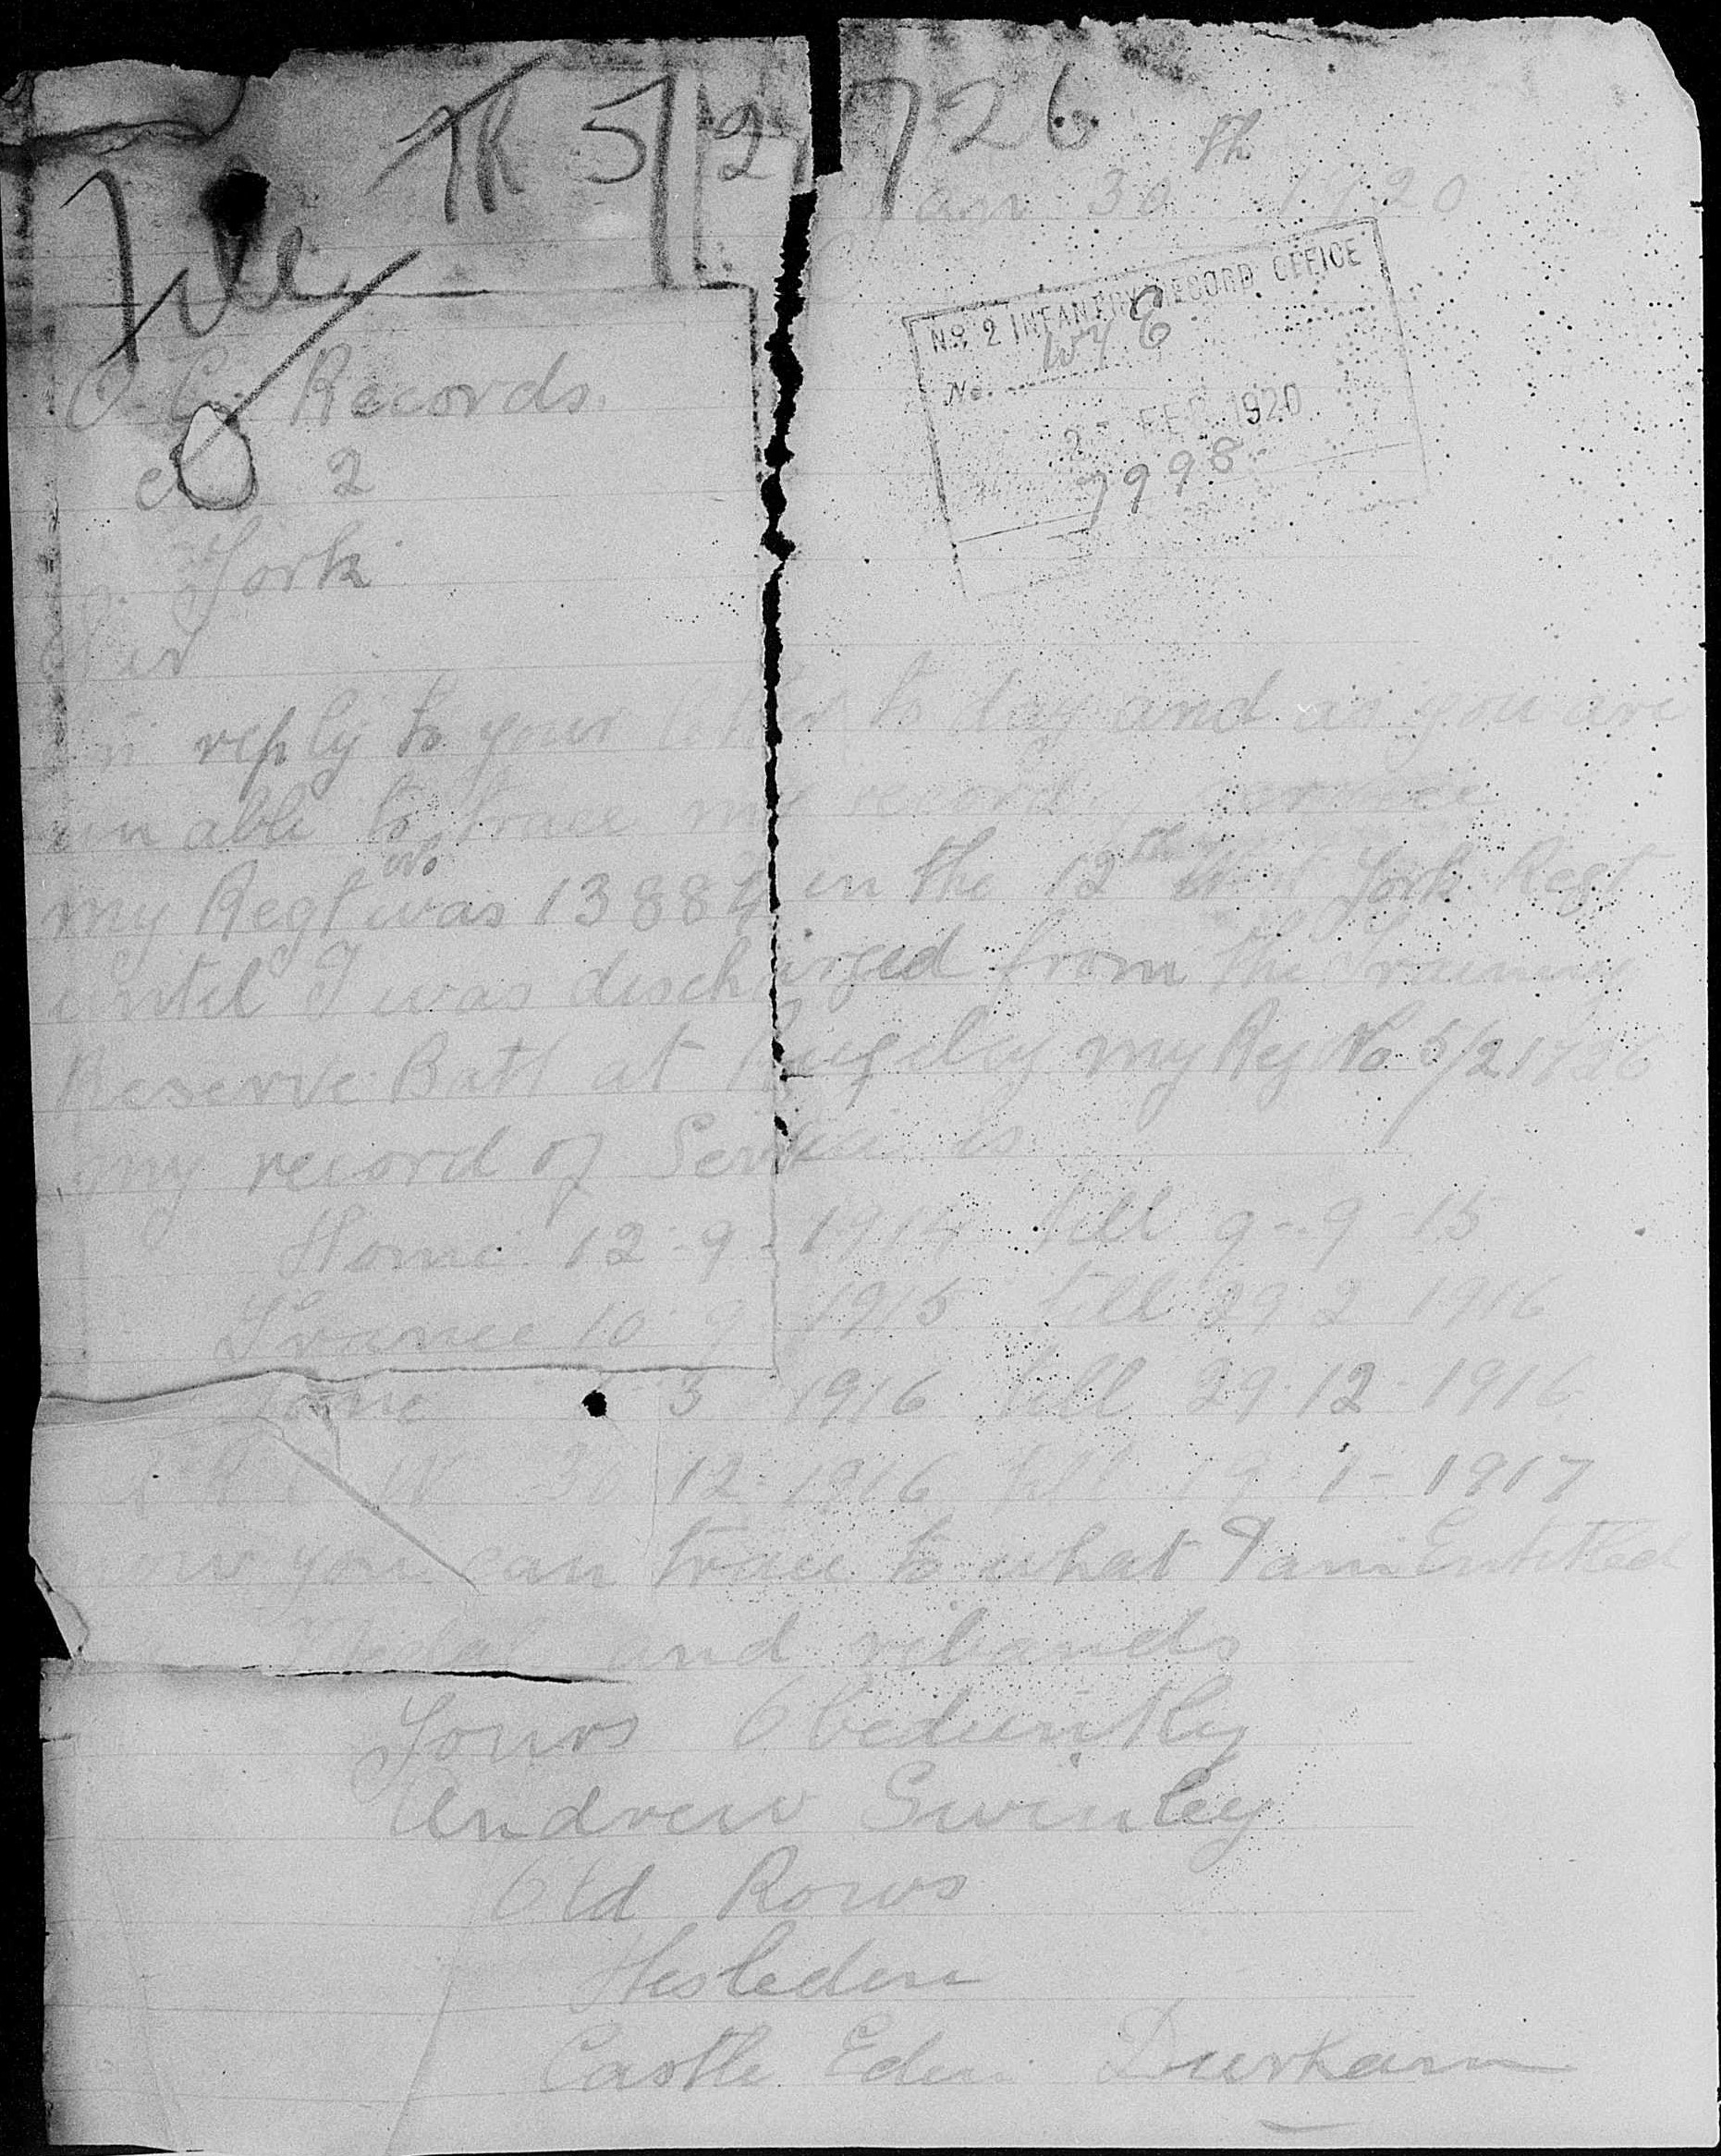 TR 5/21726
File
Jan 30th 1920
No 2 INFANTRY RECORD OFFICE
No. WYE
2 - FEB 1920
7998
O. C. Records.
No 2
York
Sir
In reply to your letter to day and as you are
un able to trace my record service
my Regt No was 13884 in the 12th West York Regt
until I was discharged from the Training
Reserve Batt at Rugeley my Reg No 5/21726
my record of Service is
Home 12-9-1914 till 9-9-15
France 10-9-1915 till 29-2-1916
Home 1-3-1916 till 29-12-1916
30-12-1916 till 19-1-1917
now you can trace to what I am Entitled
Medal and ribands
Yours Obediently
Andrew Swinley
Old Rows
Hesleden
Castle Eden Durham